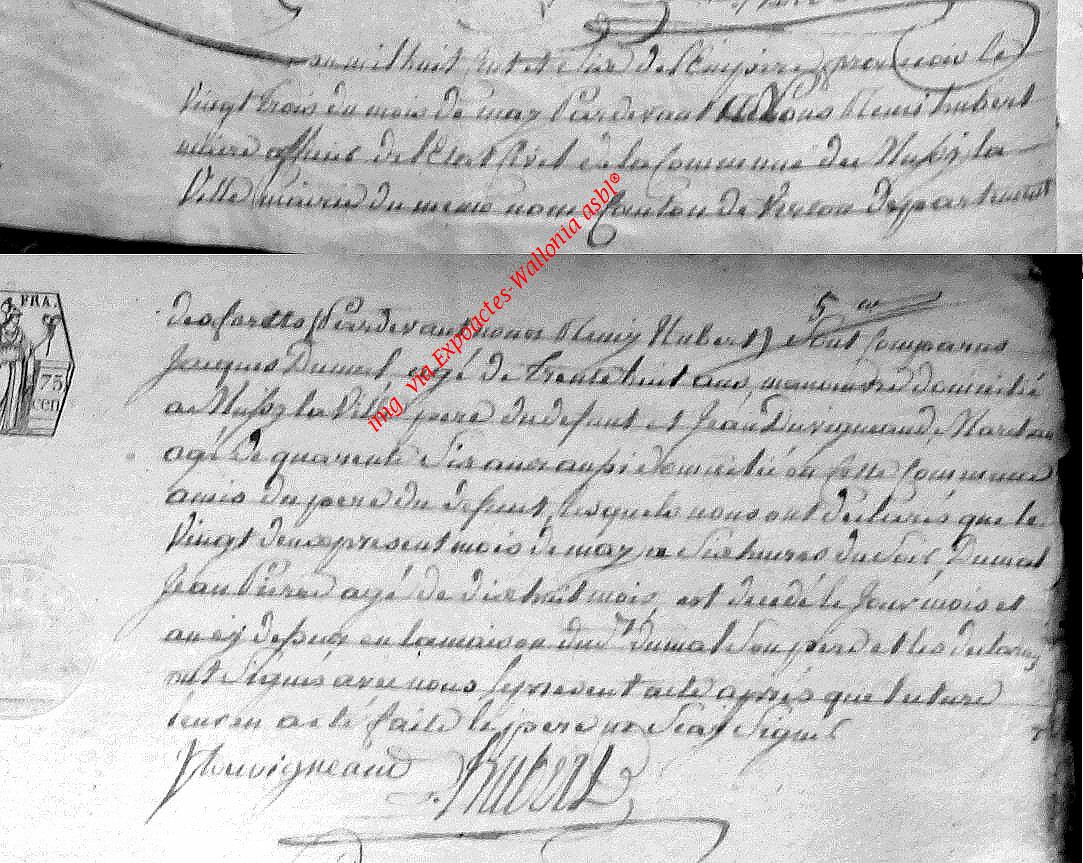 an mil huit cent et onze de l'Empire français le
Vingt trois du mois de may Pardevant Nous Henri hubert
maire officier de l'Etat Civil de la Commune de Mussy la
Ville Mairie du meme nom Canton de Virton Département
5 me
des forets Pardevant nous Henry Hubert sont Comparus
Jacques Dumal, agé de trente huit ans, domicilié
a Mussy la Ville pere du defunt et Jean Duvigneaud Marechau
agé de quarente six ans aussi domicilié en Cette Commune
amis du pere du defunt, lesquels nous ont déclarés que le
Vingt deux present mois de may a six heures du Soir, Dumal
Jean Pierre agé de dix huit mois, est decedé le Jour mois et
an cy dessus en la maison dud.t Dumal son pere et les declarans
ont signés avec nous le present acte après que lecture
leur en a eté faite le pere ne Scay Signer
J Duvigneaud Hubert
FRA.
75
cen
img via Expoactes-Wallonia asbl®